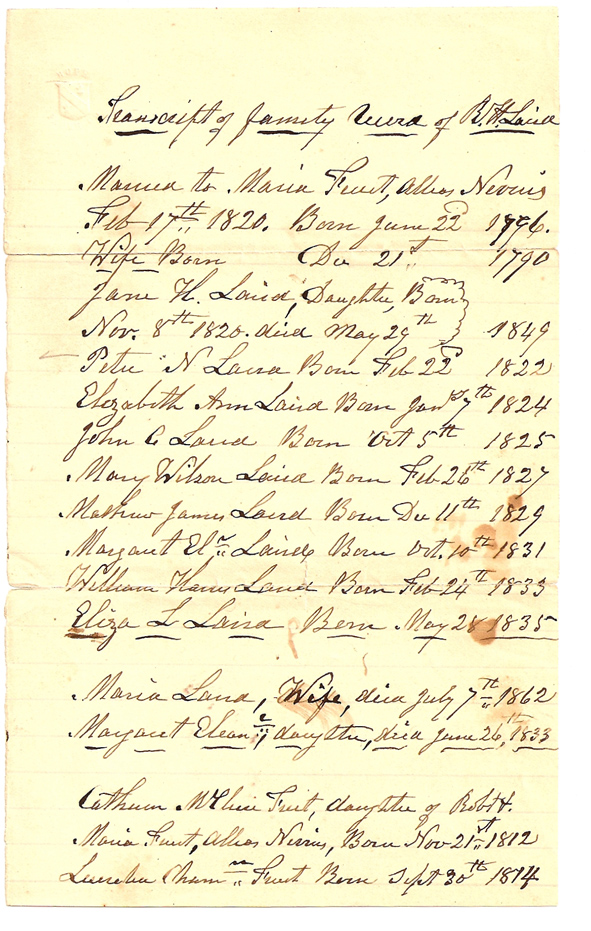 Transcript of family record of R. H. Laird
Married to Maria Fruit, Alias Nevins
Feb 17th 1820. Born June 22d 1796.
Wife Born Dec 21st 1790
Jane H. Laird, Daughter, Born
Nov. 8th 1820. died May 29th 1849
Peter N Laird Born Feb 22d 1822
Elizabeth Ann Laird Born Jany 7th 1824
John C Laird Born Oct 5th 1825
Mary Wilson Laird Born Feb 26th 1827
Mathew James Laird Born Dec 11th 1829
Margaret Elr Laird Born Oct. 10th 1831
William Hanes Laird Born Feb 24th 1833
Eliza L Laird Born May 28 1835
Maria Laird, Wife, died July 7th 1862
Margaret Eleanr, daughter, died June 26th, 1833
Fruit, daughter of Robt &
Maria Fruit, Alias Nevins, Born Nov 21st 1812
Fruit Born Sept 30th 1814